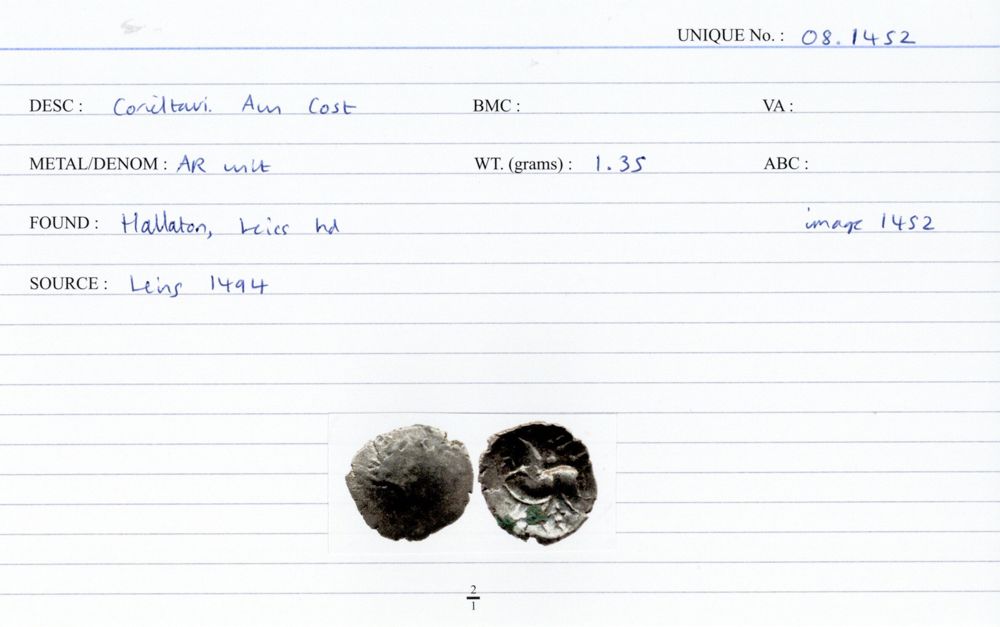 UNIQUE No. : 08.1452
DESC : Corieltavi. Aun Cost BMC : VA :
METAL/DENOM : AR unit WT. (grams) : 1.35 ABC :
FOUND : Hallaton, Leics hd image 1452
SOURCE : Leins 1494
2
1